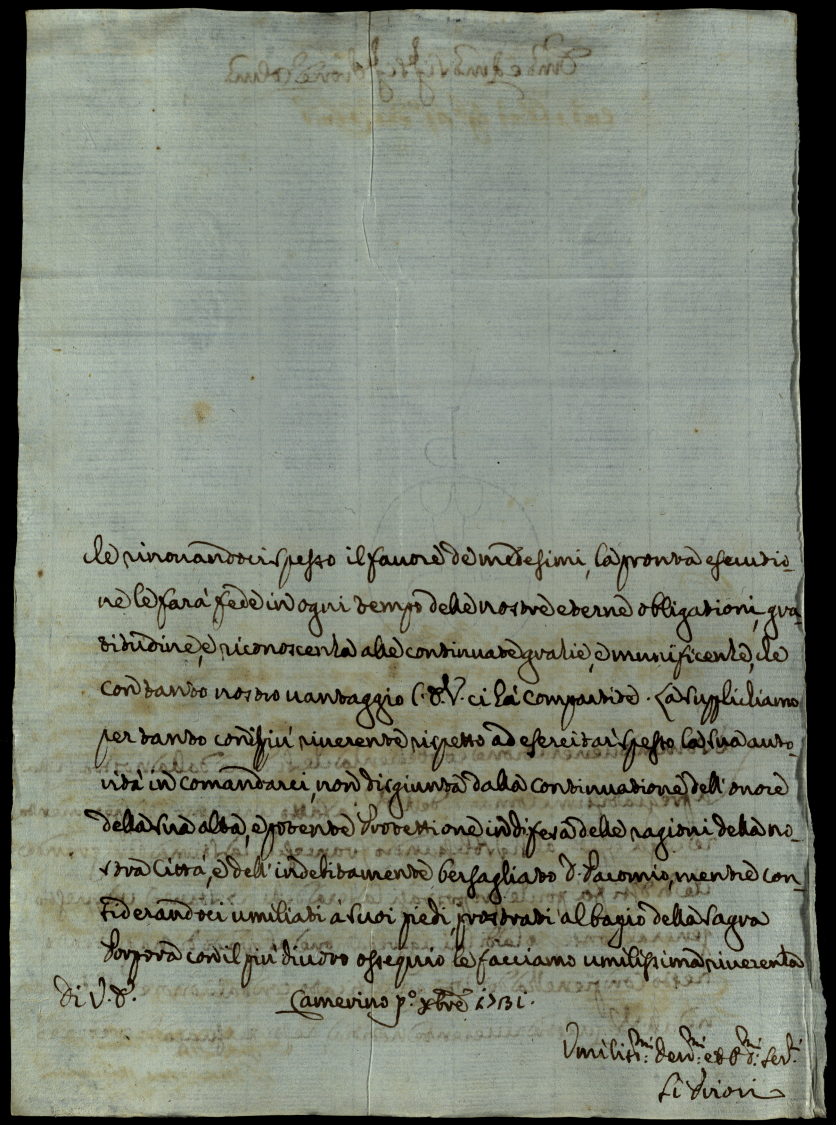 le rinouandoci spesso il fauore de medesimi, la pronta esecutio-
ne le farà fede in ogni tempo delle nostre eterne obligationi, gra-
titudine, e riconoscenza alle continuate gratie, e munificenze, che
con tanto nostro uantaggio l'E.V. ci hà compartite. La supplichiamo
per tanto con il più riuerente rispetto ad esercitar spesso la sua auto-
rità in comandarci, non disgiunta dalla continuatione dell'onore
della sua alta, e potente Protettione in difesa delle ragioni della no-
stra Città, e dell'indebitamente bersagliato S. Pacomio, mentre con-
siderandoci umiliati à suoi piedi, prostrati al bagio della Sagra
Porpora con il più diuoto ossequio le facciamo umilissima riuerenza
Di V. E. Camerino p.º Xbre 1731.
Vmiliss.mi deu.mi et Obl.mi Ser.i
Li Priori